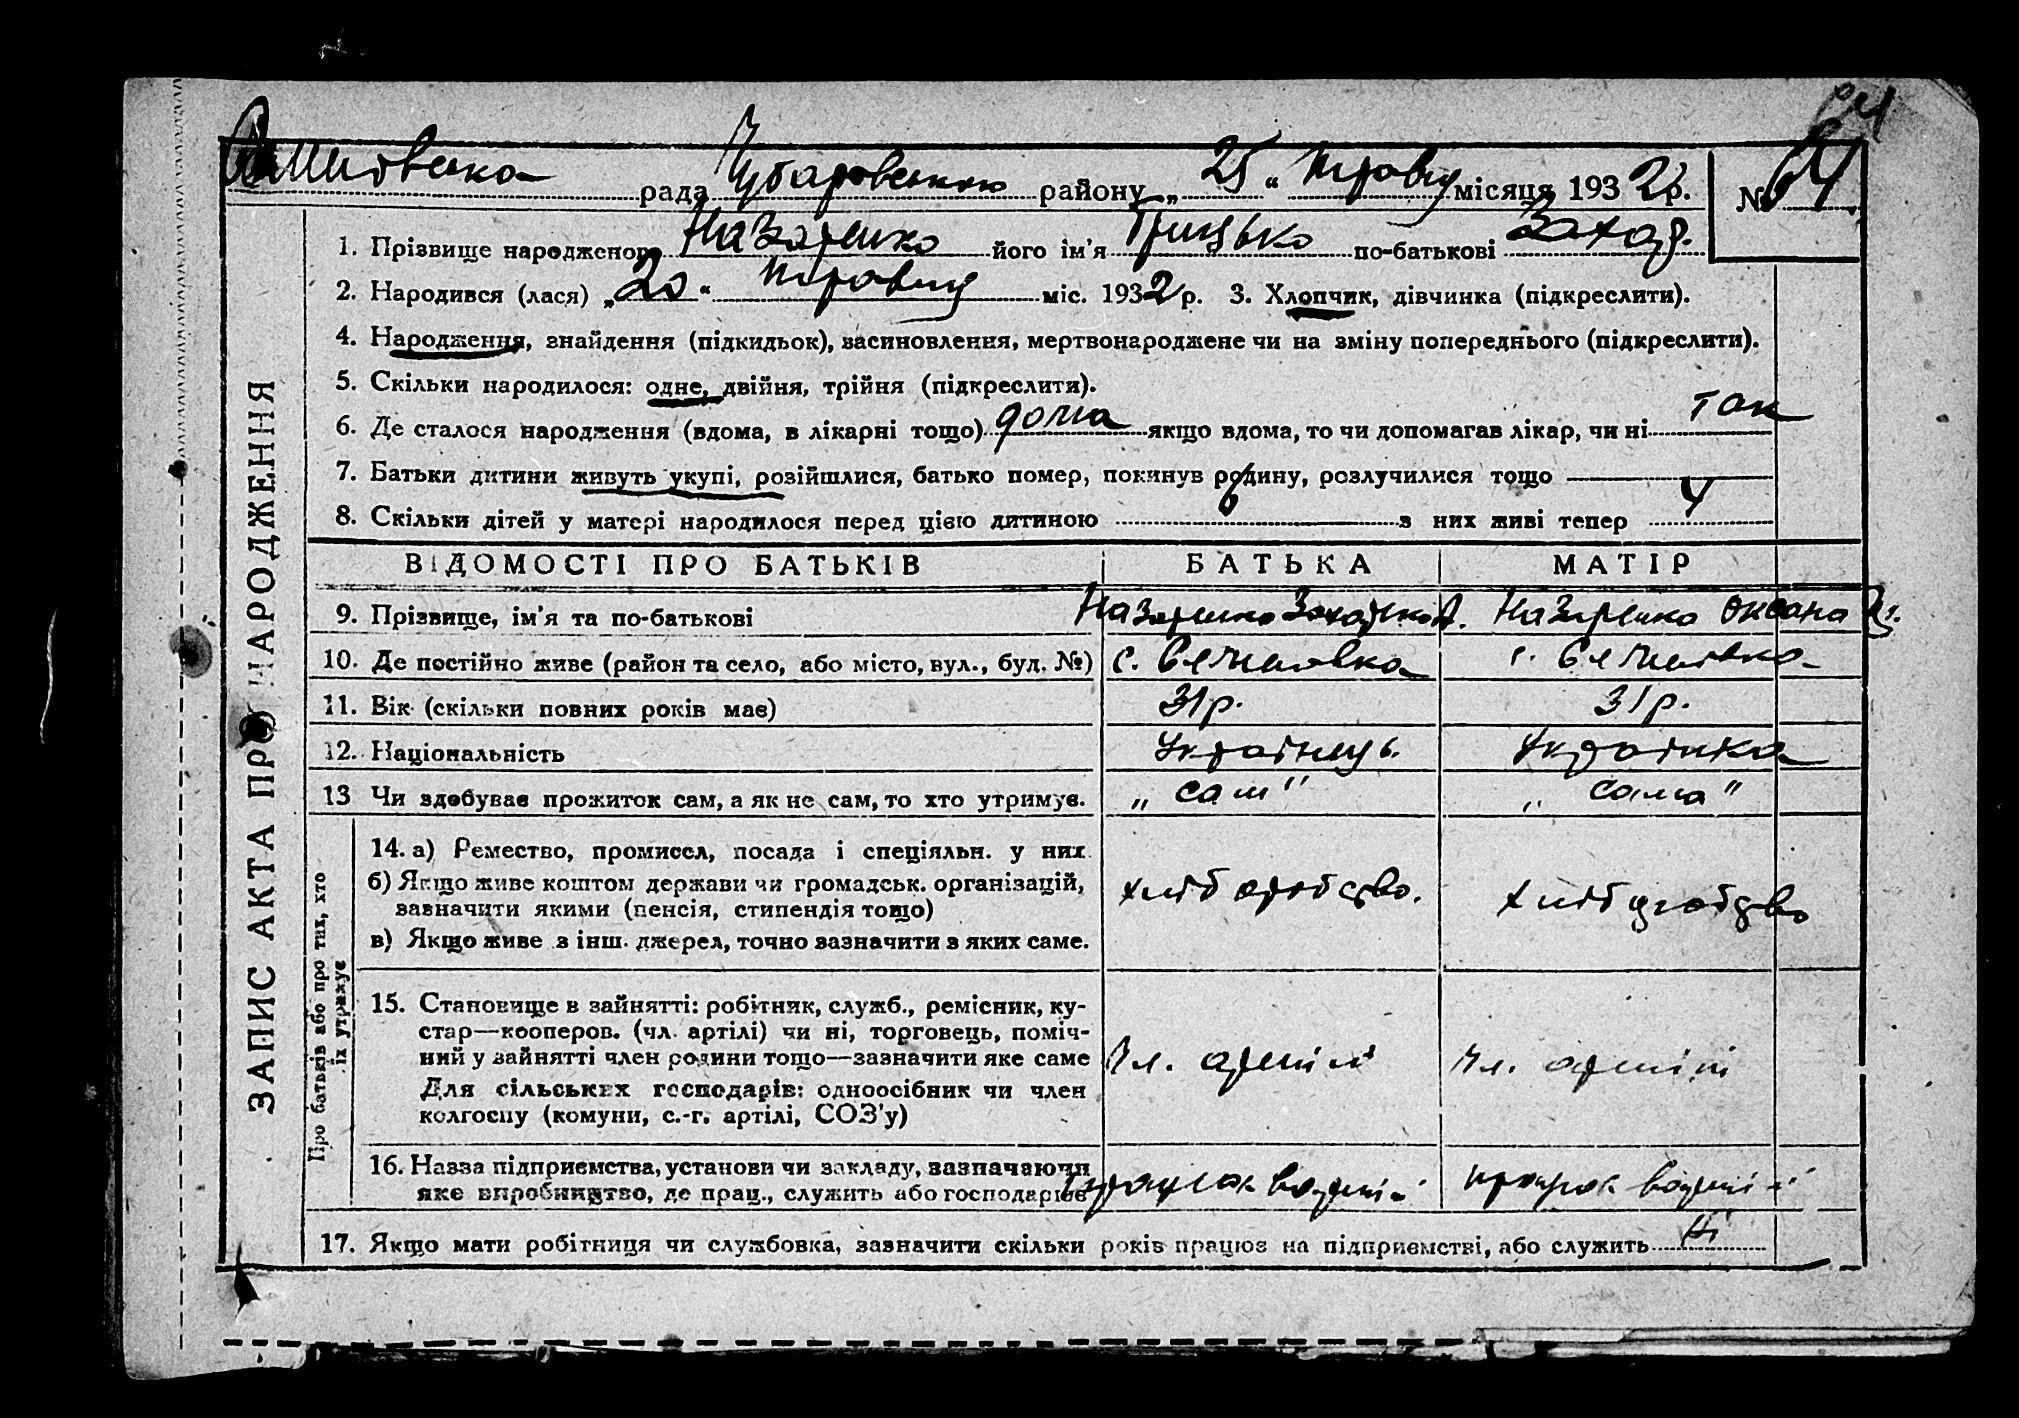 рада Чубарівського району „25“ травня місяця 1932 р. № 64
1. Прізвище народженого Назаренко його ім'я Грицько по-батькові Захар.
2. Народився (лася) „20“ травня міс. 1932 р. 3. Хлопчик, дівчинка (підкреслити).
4. Народження, знайдення (підкидьок), засиновлення, мертвонароджене чи на зміну попереднього (підкреслити).
5. Скільки народилося: одне, двійня, трійня (підкреслити).
6. Де сталося народження (вдома, в лікарні тощо) дома якщо вдома, то чи допомагав лікар, чи ні так
7. Батьки дитини живуть укупі, розійшлися, батько помер, покинув родину, розлучилися тощо
8. Скільки дітей у матері народилося перед цією дитиною 6 з них живі тепер 4
ВІДОМОСТІ ПРО БАТЬКІВ БАТЬКА МАТІР
9. Прізвище, ім'я та по-батькові Назаренко Захарко А. Назаренко Оксана
10. Де постійно живе (район та село, або місто, вул., буд. №) с. с.
11. Вік (скільки повних років має) 31 р. 31 р.
12. Національність Українець. Українка
13 Чи здобуває прожиток сам, а як не сам, то хто утримує. „сам“ „сама“
Про батьків або про тих, хто їх утримує
14. а) Ремество, промисел, посада і спеціяльн. у них
б) Якщо живе коштом держави чи громадськ. організацій,
зазначити якими (пенсія, стипендія тощо)
в) Якщо живе з інш. джерел, точно зазначити з яких саме.
хліборобство. хліборобство
15. Становище в зайнятті: робітник, служб., ремісник, ку-
стар—кооперов. (чл. артілі) чи ні, торговець, поміч-
ний у зайнятті член родини тощо—зазначити яке саме
Для сільських господарів: одноосібник чи член
колгоспу (комуни, с.-г. артілі, СОЗ'у)
Чл. артілі Чл. артілі
16. Назва підприємства, установи чи закладу, зазначаючи
яке виробництво, де прац., служить або господарює
працює в артілі працює в артілі
17. Якщо мати робітниця чи службовка, зазначити скільки років працює на підприємстві, або служить ні
ЗАПИС АКТА ПРО НАРОДЖЕННЯ